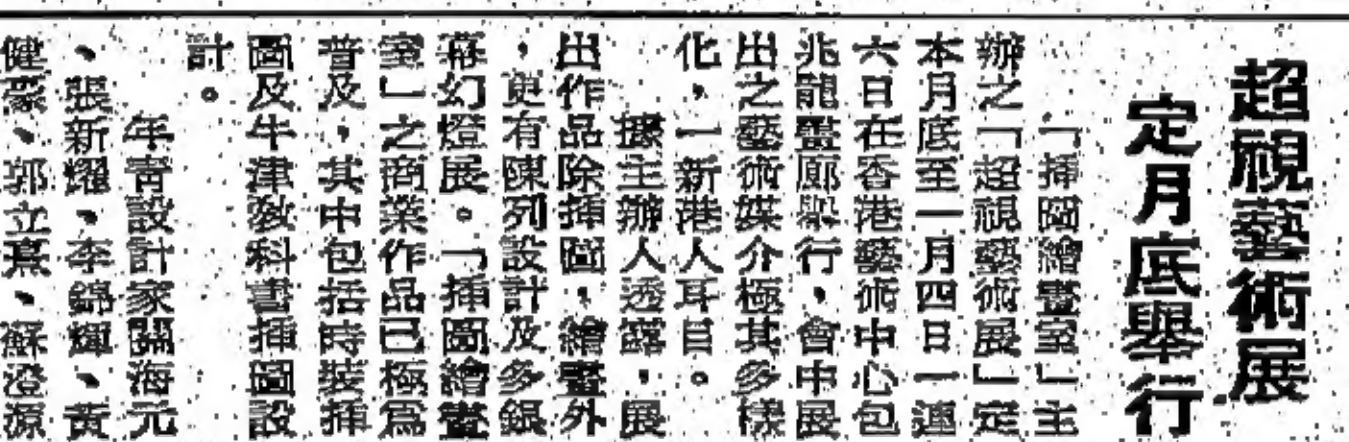 超視藝術展
定月底舉行
「揷圖繪畫室」主
辦之「超視藝術展」定
本月底至一月四日一連
六日在香港藝術中心包
兆龍畫廊舉行,會中展
出之藝術媒介極其多樣
化,一新港人耳目。
據主辦人透露,展
出作品除揷圖,繪畫外
,更有陳列設計及多銀
幕幻燈展。「揷圖繪畫
室」之商業作品已極爲
普及,其中包括時裝揷
圖及牛津敎科書揷圖設
計。
年靑設計家關海元
、張新耀、李錦輝、黃
健豪、郭立熹、蘇澄源